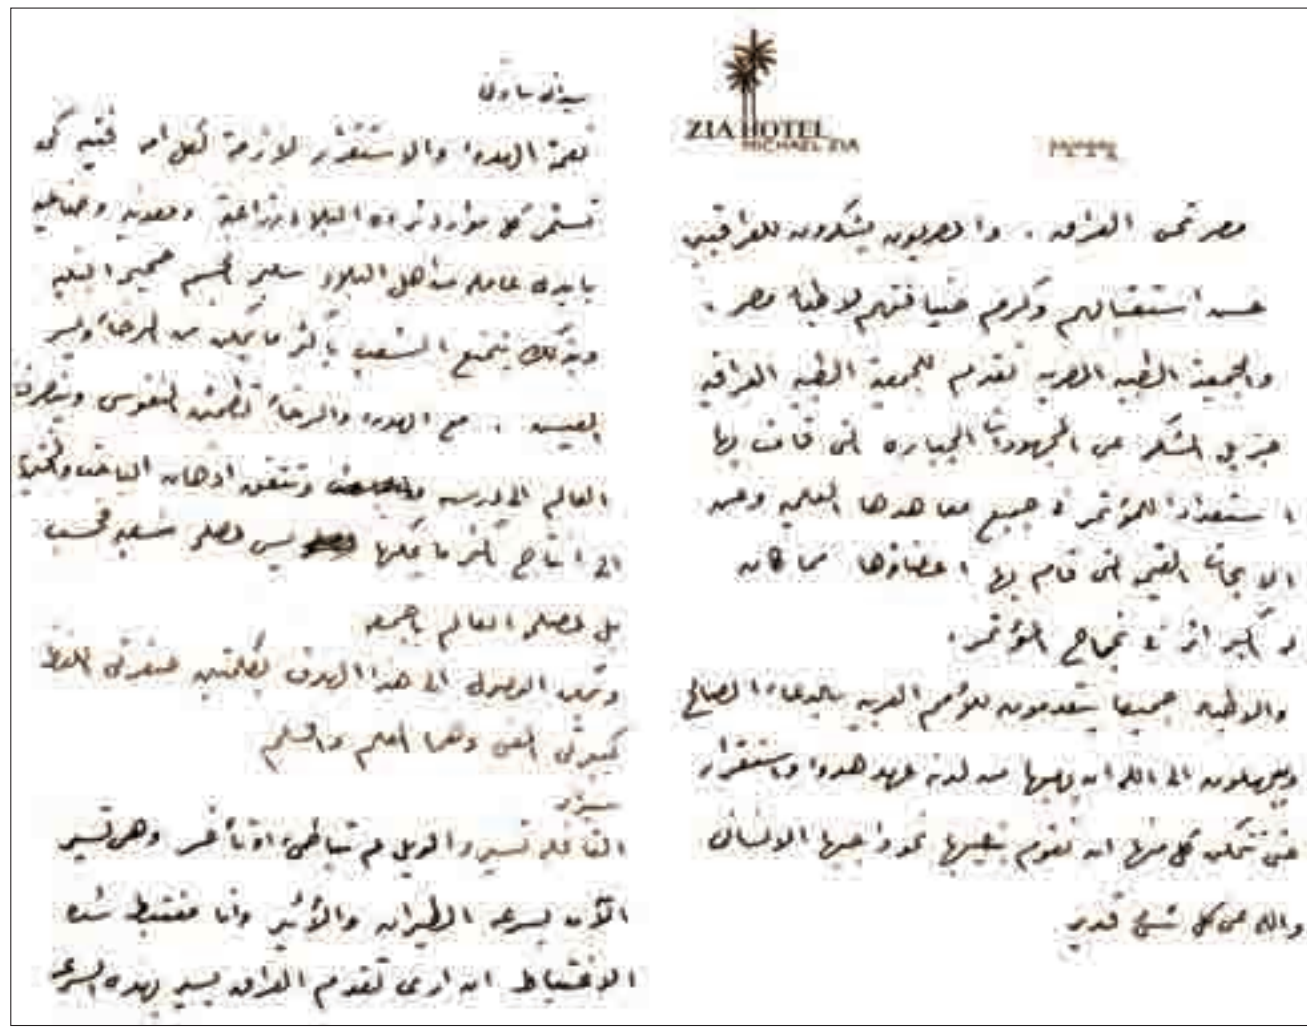 ZIA HOTEL
MICHAEL ZIA
مصر تحيى العراق . والمصريون يشكرون للعراقيين
حسن استقبالهم وكرم ضيافتهم لاطباء مصر .
والجمعية الطبية المصرية تقدم للجمعية الطبية العراقية
جزيل الشكر على المجهودات الجبارة التى قامت بها
استعدادا للمؤتمر فى جميع معاهدها العلمية وعن
الابحاث القيمة التى قام بها اعضاؤها مما كان
له أكبر اثر فى نجاح المؤتمر .
والاطباء جميعا يتقدمون للأمم العربية بالدعاء الصالح
ويبتهلون الى الله ان يهبها من لدنه عهد هدوء واستقرار
حتى تتمكن كل منها ان تقوم بنصيبها نحو واجبها الانسانى
والله على كل شئ قدير
سيداتى سادتى
نعمة الهدوء والاستقرار لازمة لكل امة فتية كى
تستثمر كل موارد ثراء البلاد زراعية ومعدنية وصناعية
بايدى عاملة من اهل البلاد سليم الجسم صحيح البنية
وبذلك يتمتع الشعب بأكثر ما يمكن من الرخاء ويسر
العيش .. مع الهدوء والرخاء تطمئن النفوس وينصرف
العالم الى درسه وتتفتق اذهان الباحث
الى انتاج أكثر ما يمكنها ليس لصالح شعبه فحسب
بل لصالح العالم باجمعه
ويمكن الوصول الى هذا الهدف بكلمتين صغيرتى اللفظ
كبيرتى المعنى وهما العلم والسلم
القافلة تسير والويل لم تباطئ او تأخر وهى تسير
الآن بسرعة الطيران والأثير وانا مغتبط شدة
الاغتباط ان ارى تقدم العراق يسير بهذه السرعة